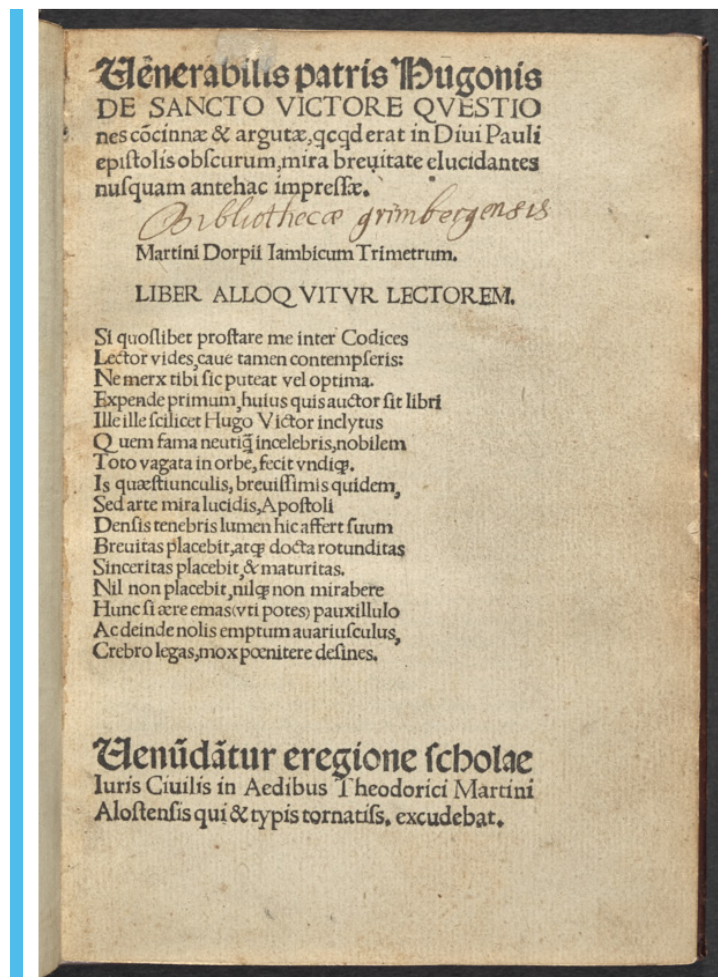 Uēnerabilis patris Hugonis
DE SANCTO VICTORE QVESTIO
nes cōcinnæ & argutæ, qcqd erat in Diui Pauli
epiſtolis obſcurum, mira breuitate elucidantes
nuſquam antehac impreſſæ.
Bibliothecæ grimbergensis
Martini Dorpii Iambicum Trimetrum.
LIBER ALLOQVITVR LECTOREM.
Si quoſlibet proſtare me inter Codices
Lector vides, caue tamen contempſeris:
Ne merx tibi ſic puteat vel optima.
Expende primum, huius quis auctor ſit libri
Ille ille ſcilicet Hugo Victor inclytus
Quem fama neutiq̃ incelebris, nobilem
Toto vagata in orbe, fecit vndiqꝫ.
Is quæſtiunculis, breuiſſimis quidem,
Sed arte mira lucidis, Apoſtoli
Denſis tenebris lumen hic affert ſuum
Breuitas placebit, atqꝫ docta rotunditas
Sinceritas placebit, & maturitas.
Nil non placebit, nilqꝫ non mirabere
Hunc ſi ære emas (vti potes) pauxillulo
Ac deinde nolis emptum auariuſculus,
Crebro legas, mox pœnitere deſines.
Uenūdātur eregione ſcholae
Iuris Ciuilis in Aedibus Theodorici Martini
Aloſtenſis qui & typis tornatiſs. excudebat.